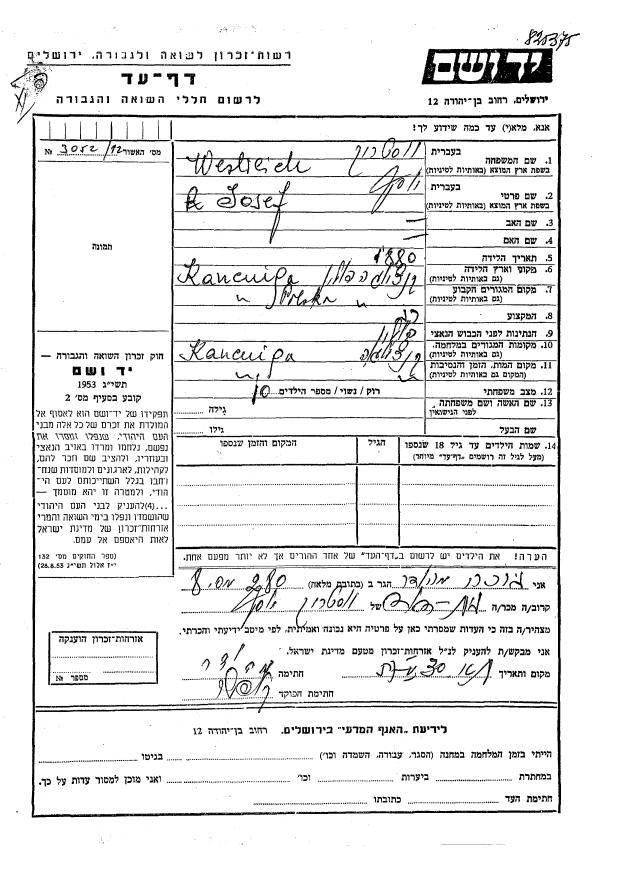 825375
רשות־זכרון לשואה ולגבורה, ירושלים
דף־עד
לרשום חללי השואה והגבורה
יד ושם
ירושלים, רחוב בן־יהודה 12
אנא, מלא(י) עד כמה שידוע לך!
מס׳ האשור 3052/92 №
תמונה
1. שם המשפחה בעברית
בשפת ארץ המוצא (באותיות לטיניות) Westreich
2. שם פרטי בעברית יוסף
בשפת ארץ המוצא (באותיות לטיניות) Josef
3. שם האב —
4. שם האם —
5. תאריך הלידה 1880
6. מקום וארץ הלידה
(גם באותיות לטיניות) Kancuiga
7. מקום המגורים הקבוע
(גם באותיות לטיניות) " Polska "
8. המקצוע
9. הנתינות לפני הכבוש הנאצי
10. מקומות המגורים במלחמה
(גם באותיות לטיניות) Kancuiga
11. מקום המות, הזמן והנסיבות
(המקום גם באותיות לטיניות) "
12. מצב משפחתי רוק / נשוי / מספר הילדים 10
13. שם האשה ושם משפחתה לפני הנישואין גילה
שם הבעל גילו
14. שמות הילדים עד גיל 18 שנספו הגיל המקום והזמן שנספו
(מעל לגיל זה רושמים ״דף־עד״ מיוחד)
חוק זכרון השואה והגבורה —
יד ושם
תשי״ג 1953
קובע בסעיף מס׳ 2
תפקידו של יד־ושם הוא לאסוף אל
המולדת את זכרם של כל אלה מבני
העם היהודי, שנפלו ומסרו את
נפשם, נלחמו ומרדו באויב הנאצי
ובעוזריו, ולהציב שם וזכר להם,
לקהילות, לארגונים ולמוסדות שנח־
רבו בגלל השתייכותם לעם הי־
הודי, ולמטרה זו יהא מוסמך —
...(4)להעניק לבני העם היהודי
שהושמדו ונפלו בימי השואה והמרי
אזרחות־זכרון של מדינת ישראל
לאות היאספם אל עמם.
(ספר החוקים מס׳ 132
י״ז אלול תשי״ג 28.8.53)
הערה! את הילדים יש לרשום ב״דף־העד״ של אחד ההורים אך לא יותר מפעם אחת.
אני הגר ב (כתובת מלאה)
קרוב/ה מכר/ה של יוסף
מצהיר/ה בזה כי העדות שמסרתי כאן על פרטיה היא נכונה ואמיתית, לפי מיטב ידיעתי והכרתי.
אני מבקש/ת להעניק לנ״ל אזרחות־זכרון מטעם מדינת ישראל.
מקום ותאריך חתימה
חתימת הפוקד
אזרחות־זכרון הוענקה
מספר №
לידיעת ״האגף המדעי״ בירושלים, רחוב בן־יהודה 12
הייתי בזמן המלחמה במחנה (הסגר, עבודה, השמדה וכו׳) בגיטו
במחתרת ביערות וכו׳ ואני מוכן למסור עדות על כך.
חתימת העד כתובתו